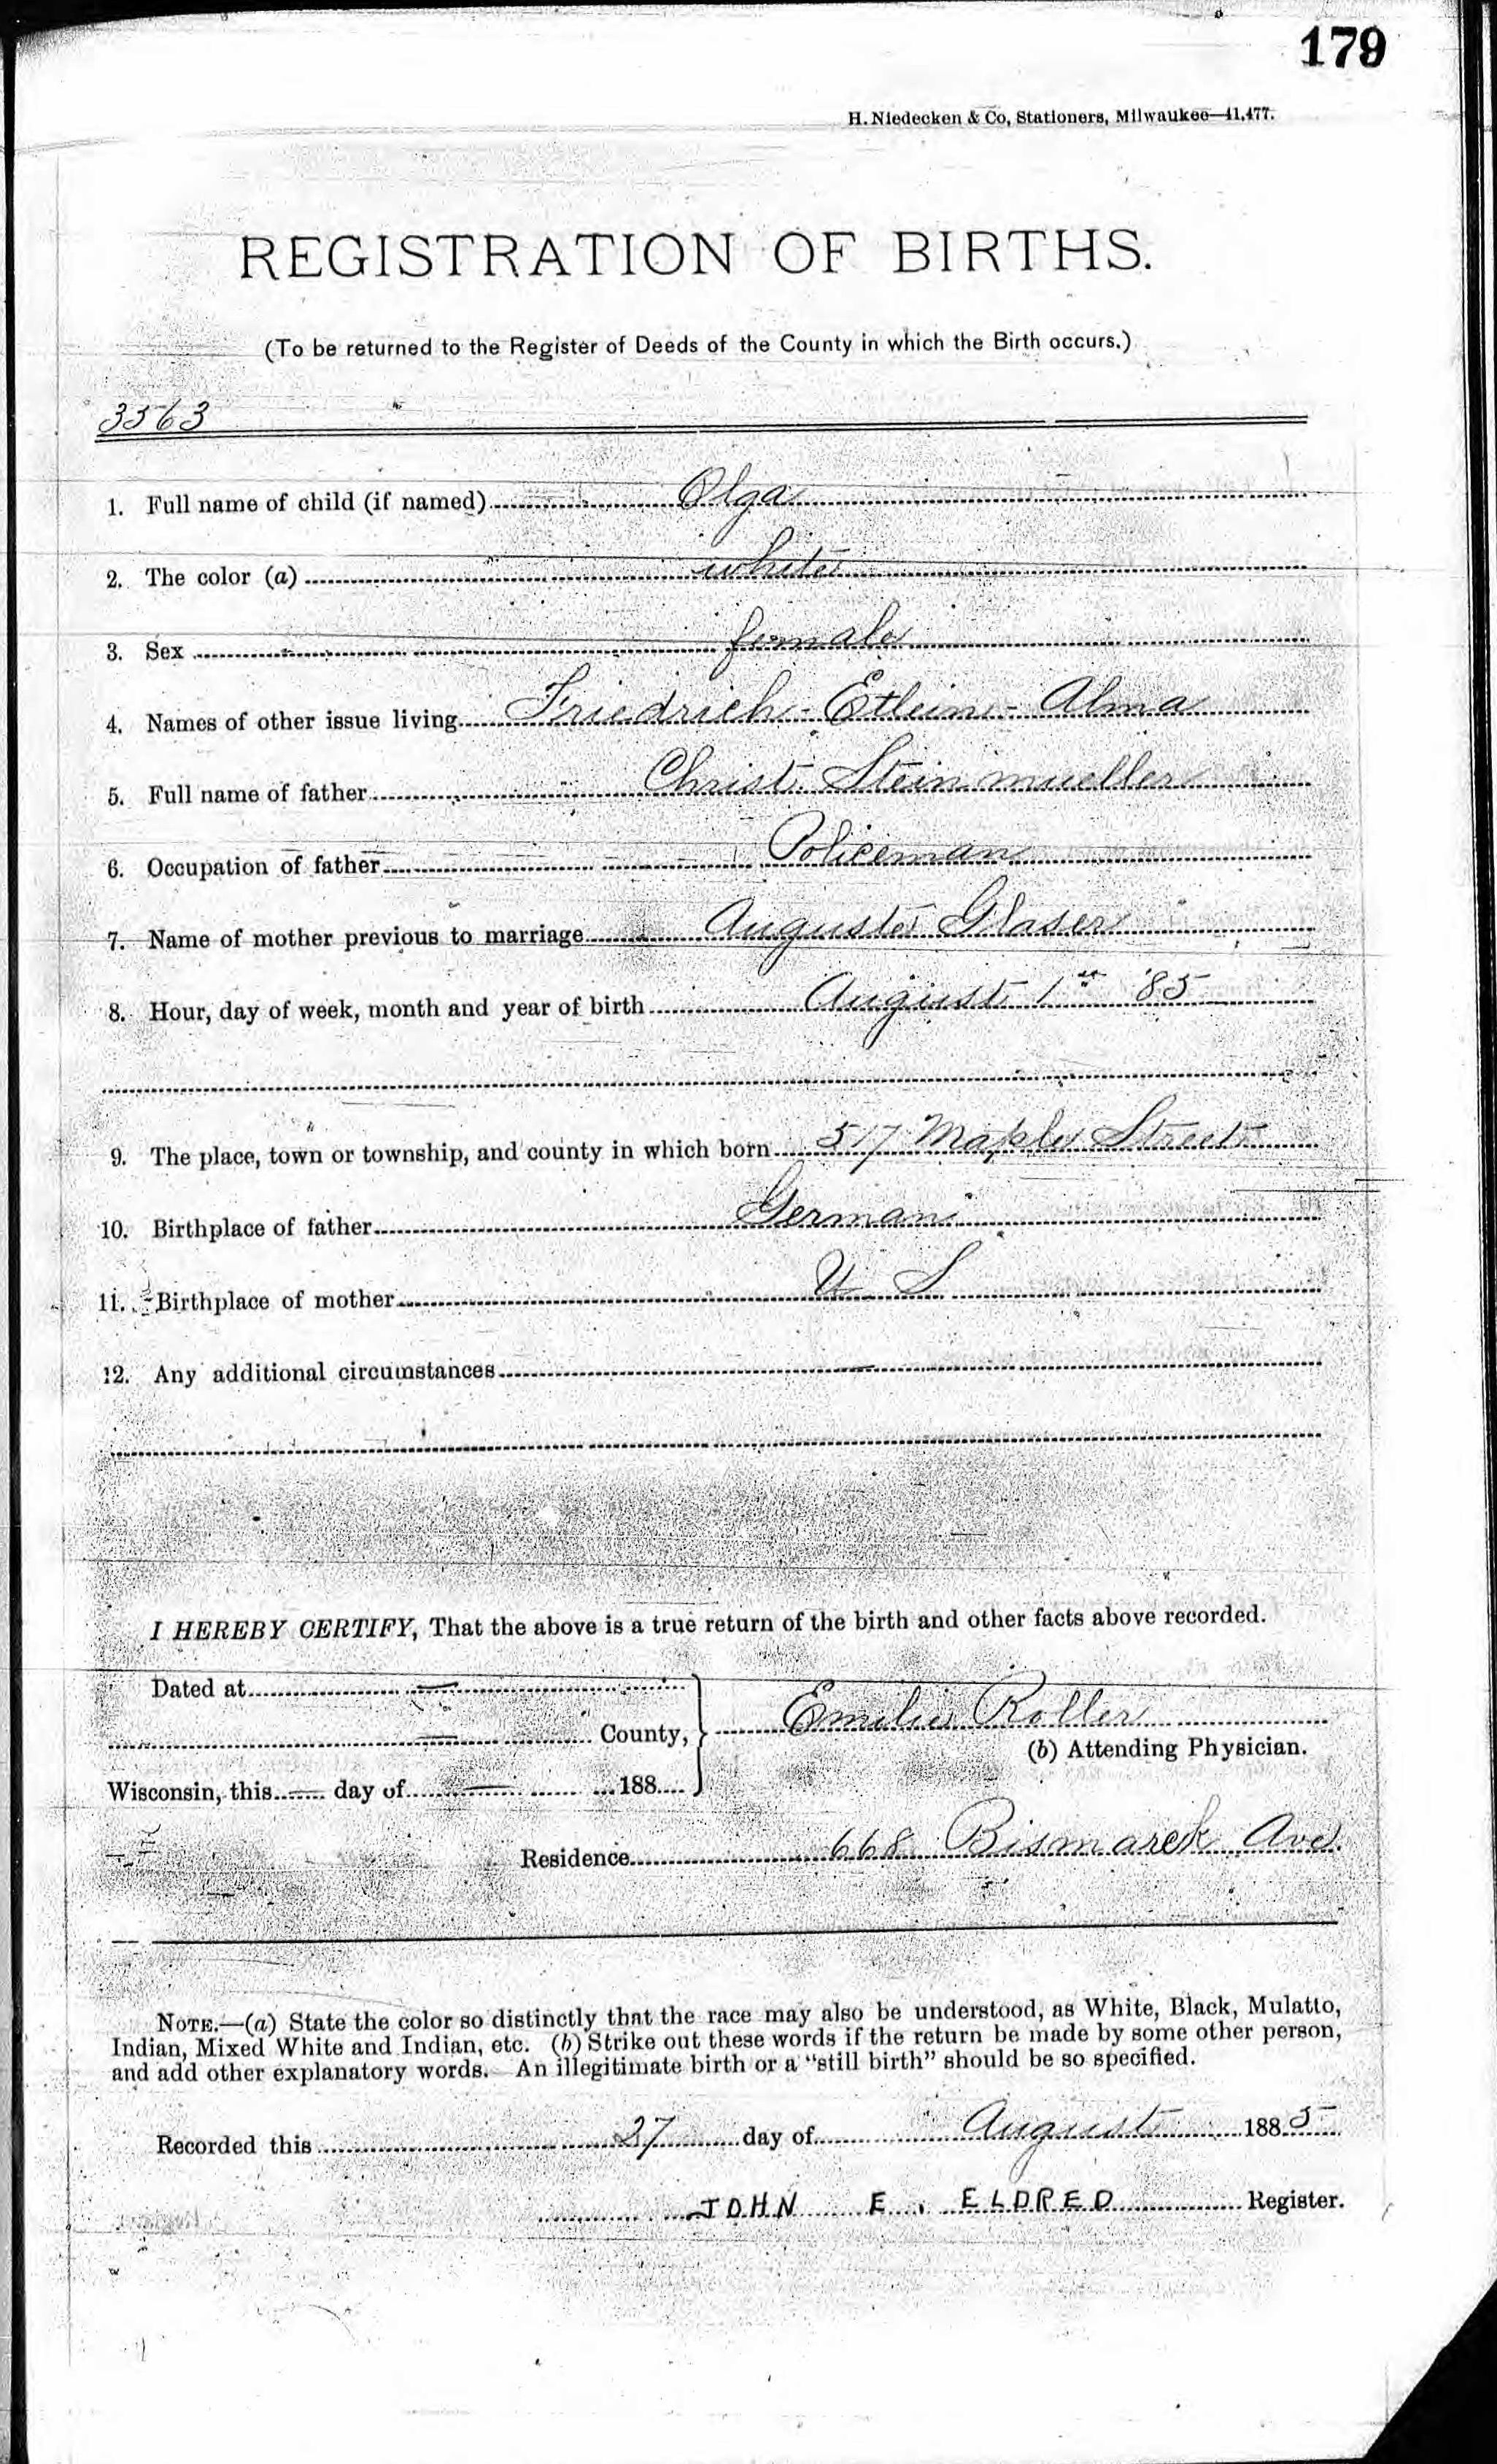 179
H. Niedecken & Co, Stationers, Milwaukee—41,477.
REGISTRATION OF BIRTHS.
(To be returned to the Register of Deeds of the County in which the Birth occurs.)
3563
1. Full name of child (if named) Olga
2. The color (a) white
3. Sex female
4. Names of other issue living Friedrich - Etlein - Alma
5. Full name of father Christ. Steinmueller
6. Occupation of father Policeman
7. Name of mother previous to marriage Auguste Glaser
8. Hour, day of week, month and year of birth August 1st '85
9. The place, town or township, and county in which born 517 Maple Street
10. Birthplace of father Germani
11. Birthplace of mother U S
12. Any additional circumstances
I HEREBY CERTIFY, That the above is a true return of the birth and other facts above recorded.
Dated at
County, Emilie Roller
(b) Attending Physician.
Wisconsin, this day of 188
Residence 668 Bismarck Ave.
NOTE.—(a) State the color so distinctly that the race may also be understood, as White, Black, Mulatto,
Indian, Mixed White and Indian, etc. (b) Strike out these words if the return be made by some other person,
and add other explanatory words. An illegitimate birth or a "still birth" should be so specified.
Recorded this 27 day of August 1885
JOHN E. ELDRED Register.